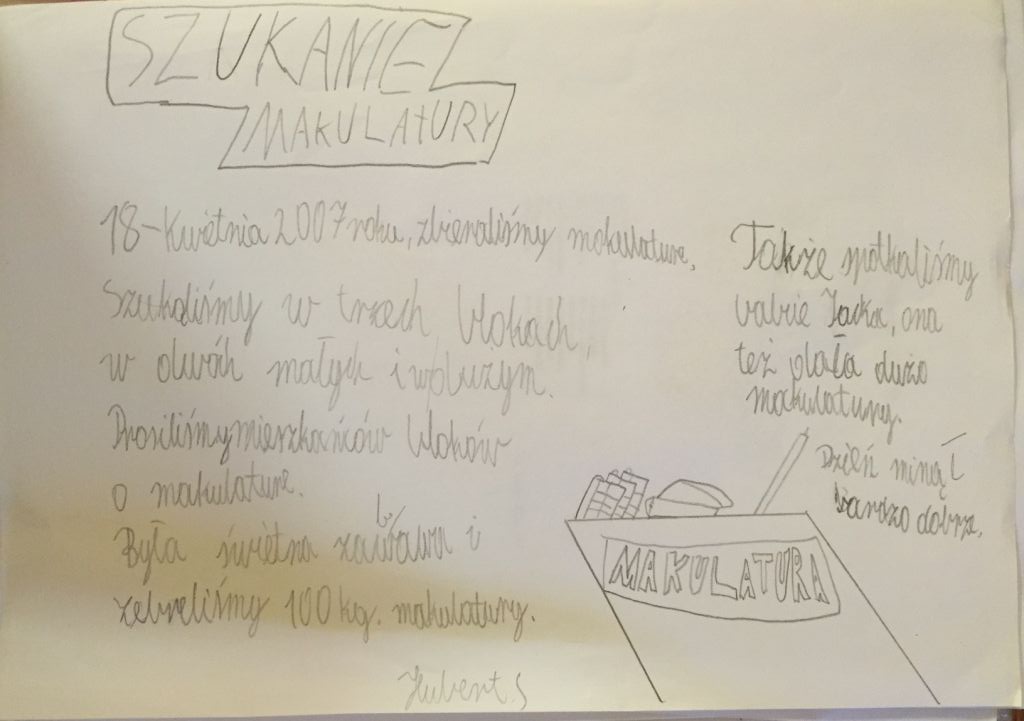 SZUKANIE
MAKULATURY
18-Kwietnia 2007 roku, zbieraliśmy makulature,
Szukaliśmy w trzech blokach,
w dwóch małych i w dużym.
Prosiliśmy mieszkańców bloków
o makulature.
Była świetna zabawa i
zebraliśmy 100 kg. makulatury.
Hubert S
Także spotkaliśmy
babcie Jacka, ona
też dała dużo
makulatury.
Dzień minął
bardzo dobrze.
MAKULATURA